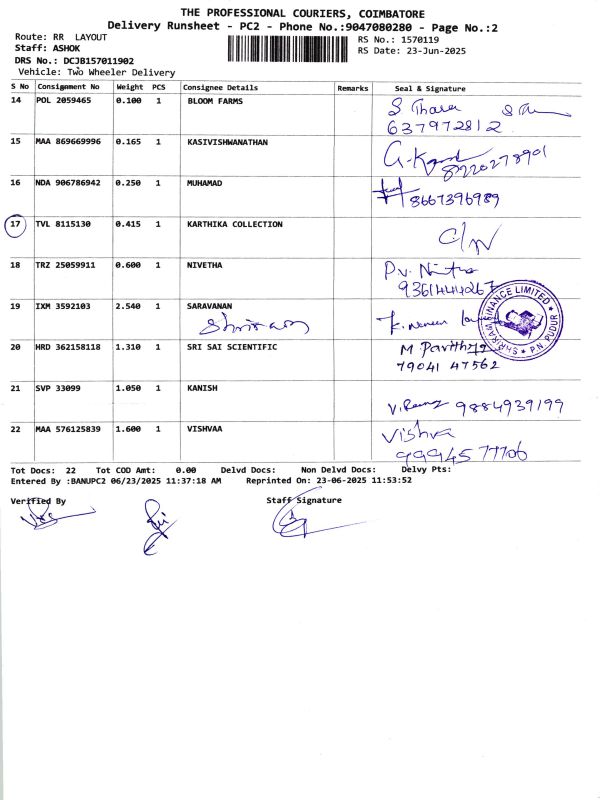 THE PROFESSIONAL COURIERS, COIMBATORE
Delivery Runsheet - PC2 - Phone No.:9047080280 - Page No.:2
Route: RR LAYOUT
RS No.: 1570119
Staff: ASHOK
RS Date: 23-Jun-2025
DRS No.: DCJB157011902
Vehicle: Two Wheeler Delivery
S No Consignment No Weight PCS Consignee Details Remarks Seal & Signature
14 POL 2059465 0.100 1 BLOOM FARMS
S Thara
637972812
15 MAA 869669996 0.165 1 KASIVISHWANATHAN
8220278901
16 NDA 906786942 0.250 1 MUHAMAD
8667396989
17 TVL 8115130 0.415 1 KARTHIKA COLLECTION
C/N
18 TRZ 25059911 0.600 1 NIVETHA
P.V. Nivetha
19 IXM 3592103 2.540 1 SARAVANAN
Shriram
SHRIRAM FINANCE LIMITED * P.N. PUDUR *
20 HRD 362158118 1.310 1 SRI SAI SCIENTIFIC
M Pavithra
79041 47562
21 SVP 33099 1.050 1 KANISH
9884939199
22 MAA 576125839 1.600 1 VISHVAA
Vishva
9994577706
Tot Docs: 22 Tot COD Amt: 0.00 Delvd Docs: Non Delvd Docs: Delvy Pts:
Entered By :BANUPC2 06/23/2025 11:37:18 AM Reprinted On: 23-06-2025 11:53:52
Verified By
Staff Signature